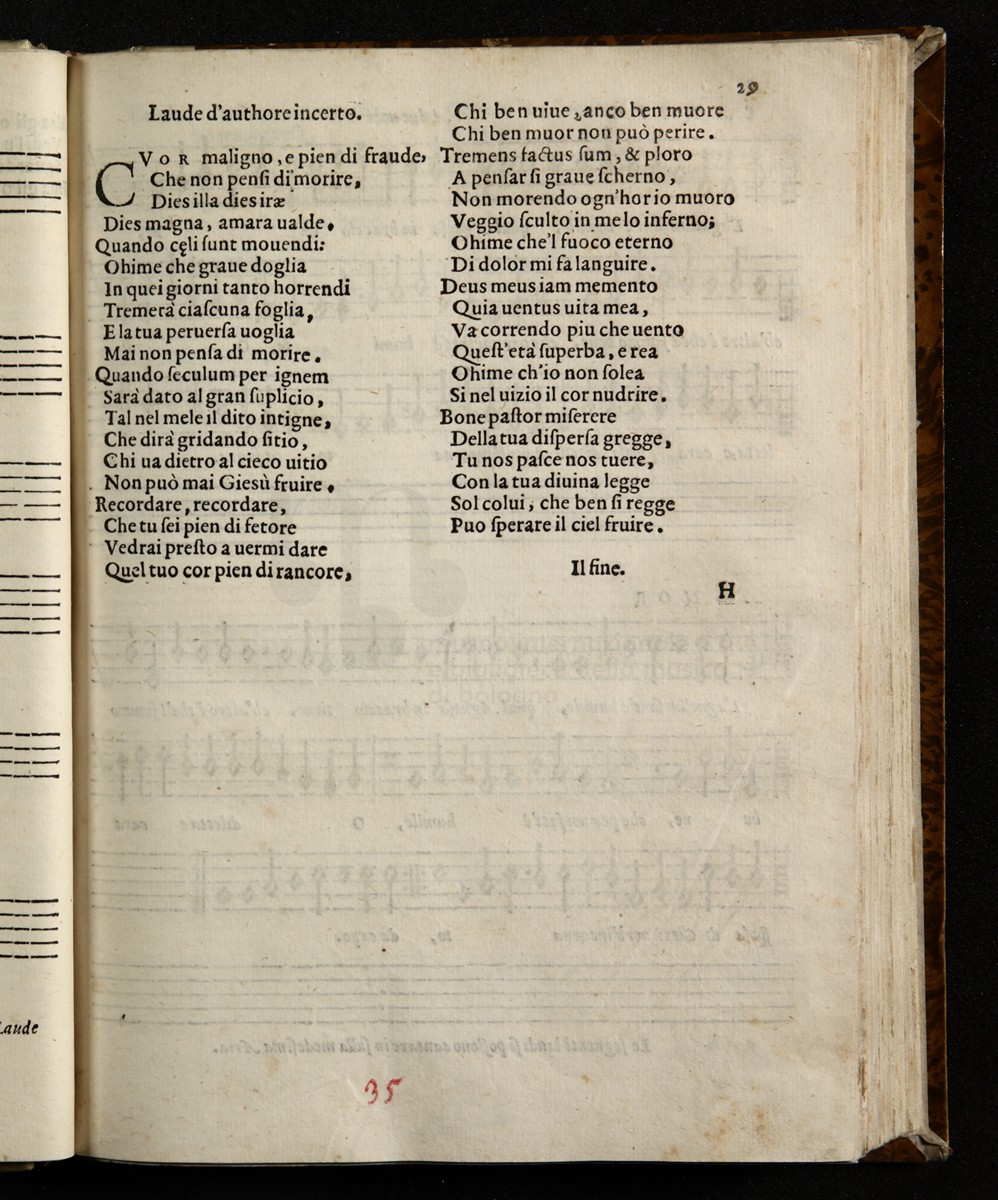 29
Laude d'authore incerto.
CVOR maligno, e pien di fraude,
Che non penſi di morire,
Dies illa dies iræ
Dies magna, amara ualde,
Quando cęli ſunt mouendi:
Ohime che graue doglia
In quei giorni tanto horrendi
Tremerà ciaſcuna foglia,
E la tua peruerſa uoglia
Mai non penſa di morire.
Quando ſeculum per ignem
Sarà dato al gran ſuplicio,
Tal nel mele il dito intigne,
Che dirà gridando ſitio,
Chi ua dietro al cieco uitio
Non può mai Gieſù fruire.
Recordare, recordare,
Che tu ſei pien di fetore
Vedrai preſto a uermi dare
Quel tuo cor pien di rancore,
Chi ben uiue, anco ben muore
Chi ben muor non può perire.
Tremens factus ſum, & ploro
A penſar ſi graue ſcherno,
Non morendo ogn'hor io muoro
Veggio ſculto in me lo inferno;
Ohime che'l fuoco eterno
Di dolor mi fa languire.
Deus meus iam memento
Quia uentus uita mea,
Va correndo piu che uento
Queſt'età ſuperba, e rea
Ohime ch'io non ſolea
Si nel uizio il cor nudrire.
Bone paſtor miſerere
Della tua diſperſa gregge,
Tu nos paſce nos tuere,
Con la tua diuina legge
Sol colui, che ben ſi regge
Puo ſperare il ciel fruire.
Il fine.
H
Laude
35